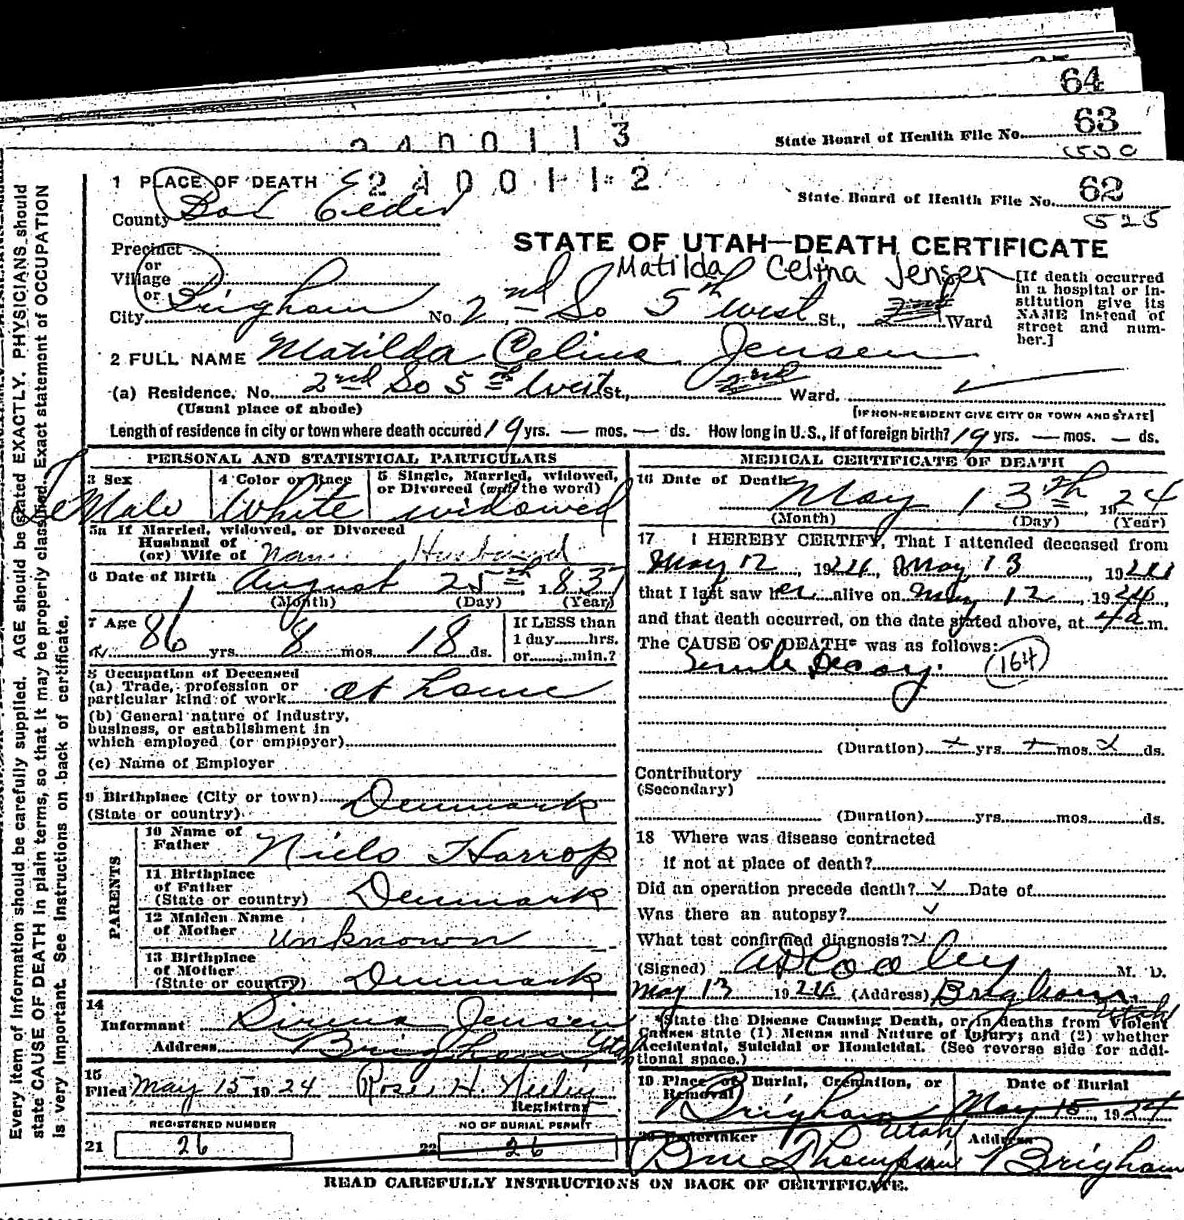 64
2400113
State Board of Health File No. 63
2400112
1 PLACE OF DEATH
State Board of Health File No. 62
525
County Box Elder
STATE OF UTAH—DEATH CERTIFICATE
Precinct
or
Village
or
Matilda Celina Jensen
[If death occurred in a hospital or institution give its NAME instead of street and number.]
City Brigham No. 2nd So 5th West St., 2nd Ward
2 FULL NAME Matilda Celina Jensen
(a) Residence. No. 2nd So 5th West St., 2nd Ward.
(Usual place of abode)
[IF NON-RESIDENT GIVE CITY OR TOWN AND STATE]
Length of residence in city or town where death occured 19 yrs. — mos. — ds. How long in U.S., if of foreign birth? 19 yrs. — mos. — ds.
PERSONAL AND STATISTICAL PARTICULARS
3 Sex
4 Color or Race
5 Single, Married, widowed,
or Divorced (write the word)
FeMale White widowed
5a If Married, widowed, or Divorced
Husband of
(or) Wife of Husband
6 Date of Birth August 25th, 1837
(Month) (Day) (Year)
7 Age 86 yrs. 8 mos. 18 ds.
If LESS than
1 day......hrs.
or......min.?
8 Occupation of Deceased
(a) Trade, profession or
particular kind of work at home
(b) General nature of industry,
business, or establishment in
which employed (or employer)
(c) Name of Employer
9 Birthplace (City or town) Denmark
(State or country)
PARENTS
10 Name of
Father Niels Harrop
11 Birthplace
of Father
(State or country) Denmark
12 Maiden Name
of Mother unknown
13 Birthplace
of Mother
(State or country) Denmark
14
Informant Jensen
Address Brigham Utah
15
Filed May 15 1924 Rose H. Neeley
Registrar
REGISTERED NUMBER
NO OF BURIAL PERMIT
21 26
22 26
MEDICAL CERTIFICATE OF DEATH
16 Date of Death May 13th 1924
(Month) (Day) (Year)
17 I HEREBY CERTIFY, That I attended deceased from
May 12, 1924, May 13 1924
that I last saw her alive on May 12, 1924,
and that death occurred, on the date stated above, at 4 a m.
The CAUSE OF DEATH* was as follows:
Senile Decay. 164
(Duration) yrs. mos. ds.
Contributory
(Secondary)
(Duration) yrs. mos. ds.
18 Where was disease contracted
if not at place of death?
Did an operation precede death? Date of
Was there an autopsy?
What test confirmed diagnosis?
(Signed) AD Cooley M. D.
May 13 1924 (Address) Brigham, Utah
*State the Disease Causing Death, or in deaths from Violent
Causes state (1) Means and Nature of Injury; and (2) whether
Accidental, Suicidal or Homicidal. (See reverse side for addi-
tional space.)
19 Place of Burial, Cremation, or
Removal
Date of Burial
Brigham Utah May 15, 1924
20 Undertaker Address
Thompson Brigham
READ CAREFULLY INSTRUCTIONS ON BACK OF CERTIFICATE.
Every item of information should be carefully supplied. AGE should be stated EXACTLY. PHYSICIANS should
state CAUSE OF DEATH in plain terms, so that it may be properly classified. Exact statement of OCCUPATION
is very important. See instructions on back of certificate.